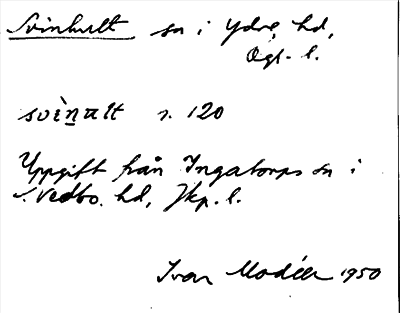 Svinhult sn i Ydre hd,
Ögl. l.
svìn̲alt s. 120
Uppgift från Ingatorps sn i
S. Vedbo hd, Jkp. l.
Ivar Modéer 1950